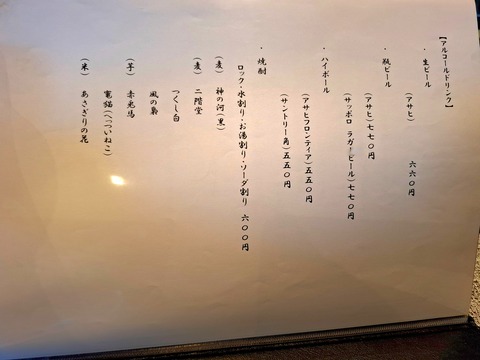 【アルコールドリンク】
・生ビール
（アサヒ） 六六〇円
・瓶ビール
（アサヒ）七七〇円
（サッポロ ラガービール）七七〇円
・ハイボール
（アサヒフロンティア）五五〇円
（サントリー角）五五〇円
・焼酎
ロック・水割り・お湯割り・ソーダ割り 六〇〇円
（麦） 神の河（黒）
（麦） 二階堂
つくし白
風の梟
（芋） 赤兎馬
竃猫（へっついねこ）
（米） あさぎりの花